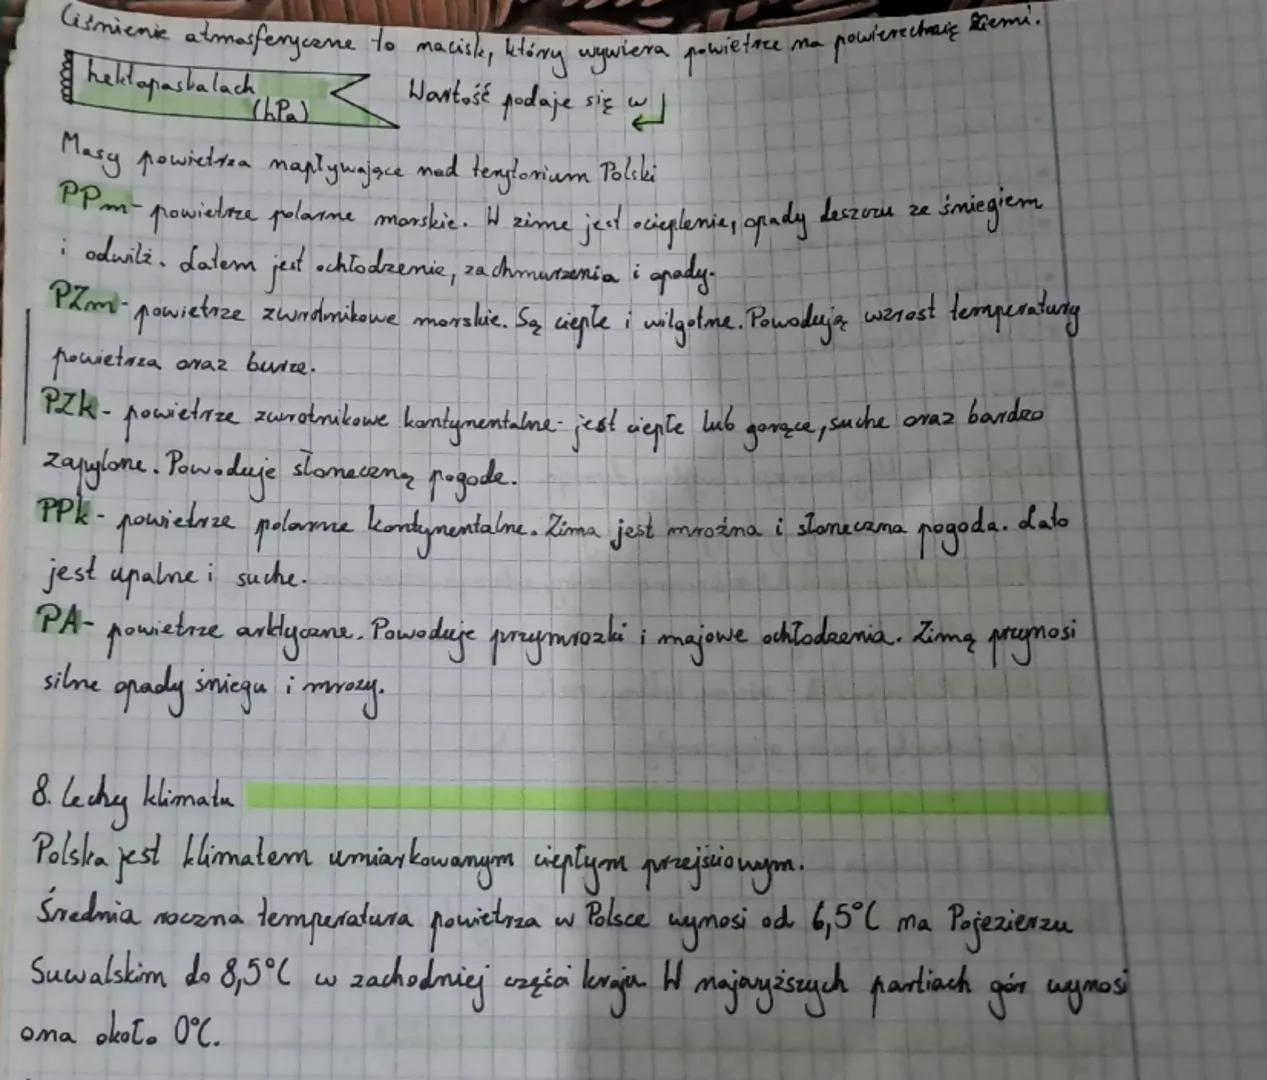 Ciśnienie atmosferyczne to nacisk, który wywiera powietrze na powierzchnię Ziemi.
hektopaskalach
(hPa)
Wartość podaje się w
Masy powietrza napływające nad terytorium Polski
PPm- powietrze polarne morskie. W zime jest ocieplenie, opady deszczu ze śniegiem
i odwilż. Latem jest ochłodzenie, zachmurzenia i opady.
PZm- powietrze zwrotnikowe morskie. Są ciepłe i wilgotne. Powodują wzrost temperatury
powietrza oraz burze.
PZk- powietrze zwrotnikowe kontynentalne- jest ciepłe lub gorące, suche oraz bardzo
zapylone. Powoduje słoneczną pogode.
PPk- powietrze polarne kontynentalne. Zima jest mroźna i słoneczna pogoda. Lato
jest upalne i suche.
PA- powietrze arktyczne. Powoduje przymrozki i majowe ochłodzenia. Zimą przynosi
silne opady śniegu i mrozy.
8. Cechy klimatu
Polska jest klimatem umiarkowanym ciepłym przejściowym.
Średnia roczna temperatura powietrza w Polsce wynosi od 6,5°C na Pojezierzu
Suwalskim do 8,5°C w zachodniej części kraju. W najwyższych partiach gór wynosi
ona około 0°C.